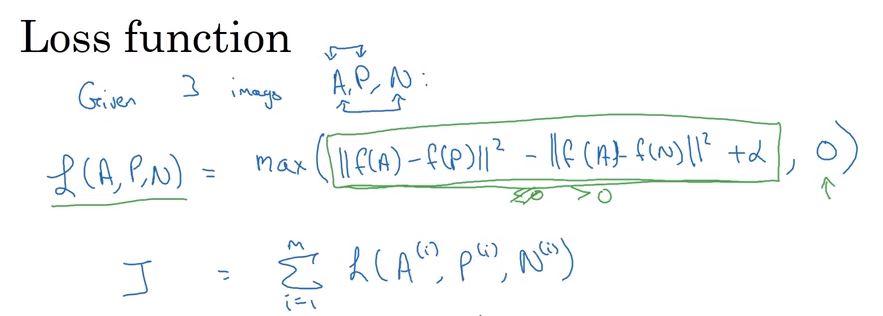 Loss function
Given 3 images A, P, N:
ℒ(A,P,N) = max(||f(A) - f(P)||² - ||f(A) - f(N)||² + α, 0)
≤0 >0 ↑
J = Σ_{i=1}^{M} ℒ(A^{(i)}, P^{(i)}, N^{(i)})